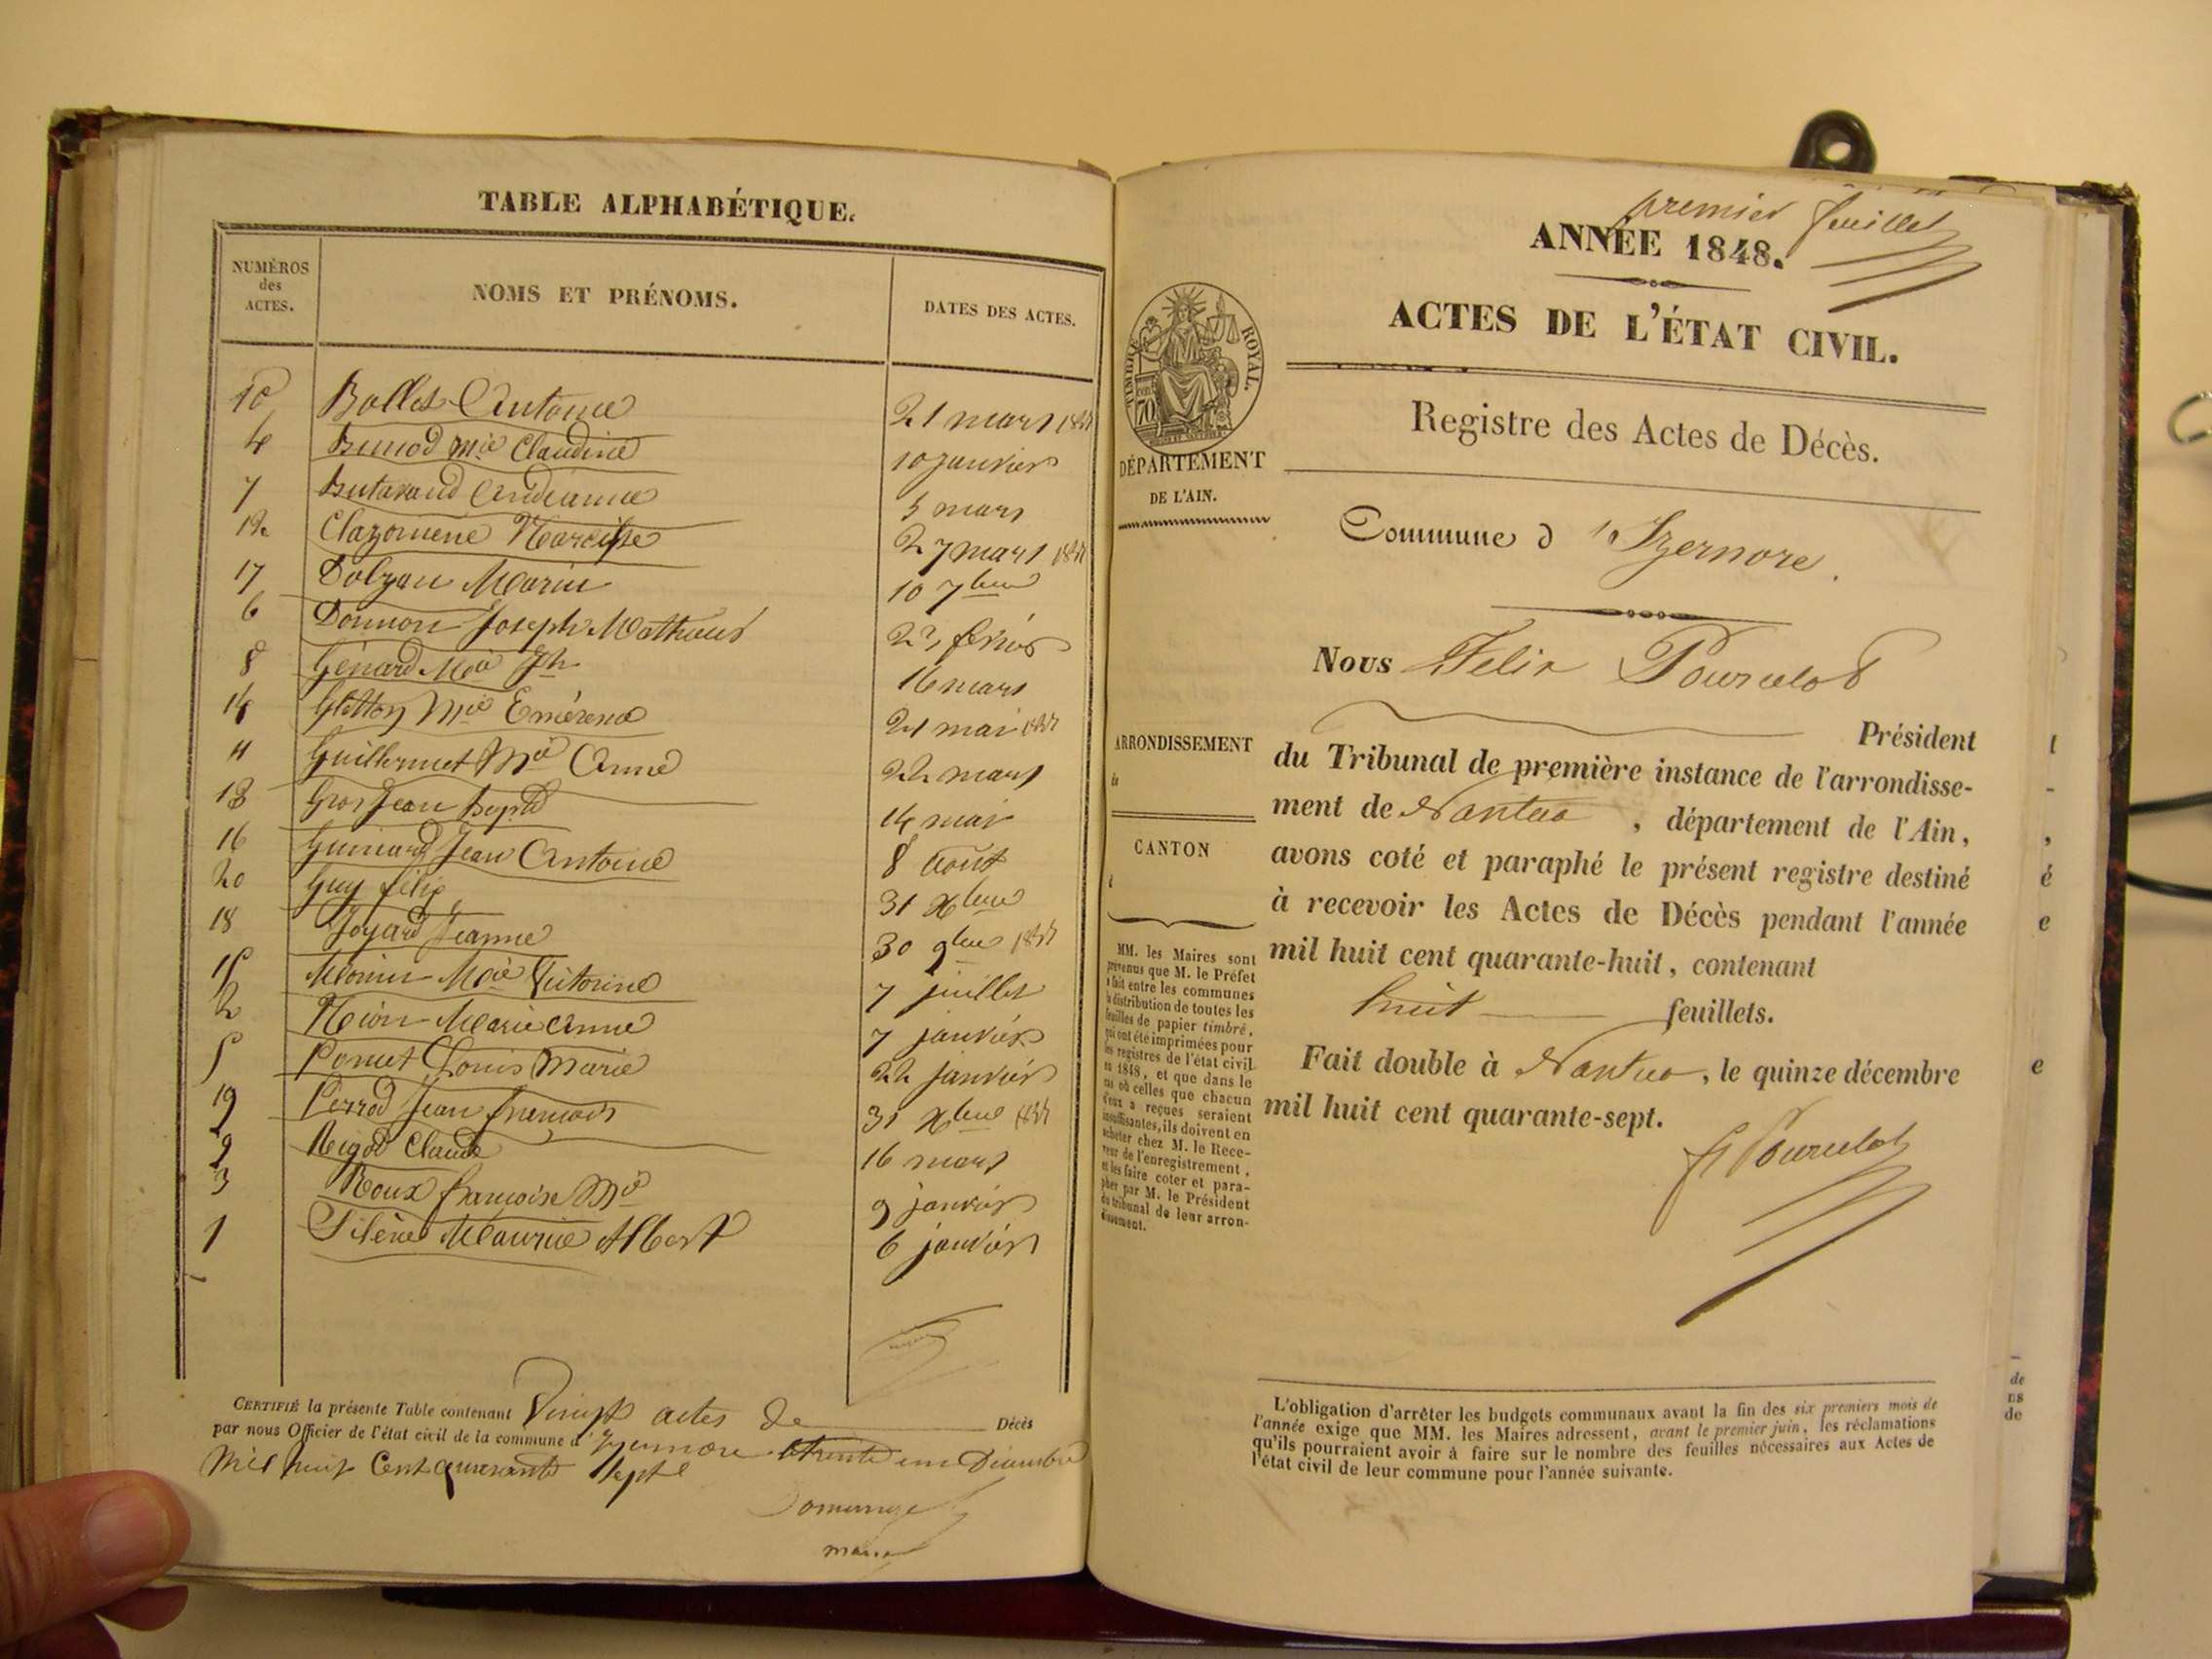 TABLE ALPHABÉTIQUE.
NUMÉROS des ACTES. NOMS ET PRÉNOMS. DATES DES ACTES.
10 Bollet Antoine 21 mars 1847
4 Benod Mie Claudine 10 janvier
7 Butavand 5 mars
12 Clazomène Narcisse 27 mars 1847
17 Dalzon Marie 10 7bre
6 Donnon Joseph Mathieu 23 février
8 Génard Mie Jh 16 mars
14 Glétton Mie Emérence 21 mai 1847
11 Guillermet Mie Anne 22 mars
13 Gros Jean Bapte 14 mai
16 Guinard Jean Antoine 8 Août
20 Guy félix 31 Xbre
18 Joyard Jeanne 30 9bre 1847
15 Monin Mie Victorine 7 juillet
2 Marie Anne 7 janvier
5 Poncet Louis Marie 22 janvier
19 Perrod Jean françois 31 Xbre 1847
9 Rigod Claude 16 mars
3 Roux françoise Mie 9 janvier
1 Silène Maurice Albert 6 janvier
CERTIFIÉ la présente Table contenant Vingt actes de Décès
par nous Officier de l'état civil de la commune d'Izernore le trente un Décembre
mil huit Cent quarante Sept
Domange
maire
premier feuillet
ANNÉE 1848.
ACTES DE L'ÉTAT CIVIL.
TIMBRE ROYAL.
70
Registre des Actes de Décès.
DÉPARTEMENT
DE L'AIN.
Commune d'Izernore.
Nous Felix Pourcelot
Président
du Tribunal de première instance de l'arrondisse-
ment de Nantua, département de l'Ain,
avons coté et paraphé le présent registre destiné
à recevoir les Actes de Décès pendant l'année
mil huit cent quarante-huit, contenant
huit feuillets.
Fait double à Nantua, le quinze décembre
mil huit cent quarante-sept.
F Pourcelot
ARRONDISSEMENT
CANTON
MM. les Maires sont
prévenus que M. le Préfet
a fait entre les communes
la distribution de toutes les
feuilles de papier timbré,
qui ont été imprimées pour
les registres de l'état civil
en 1848, et que dans le
cas où celles que chacun
d'eux a reçues seraient
insuffisantes, ils doivent en
acheter chez M. le Rece-
veur de l'enregistrement,
et les faire coter et para-
pher par M. le Président
du tribunal de leur arron-
dissement.
L'obligation d'arrêter les budgets communaux avant la fin des six premiers mois de
l'année exige que MM. les Maires adressent, avant le premier juin, les réclamations
qu'ils pourraient avoir à faire sur le nombre des feuilles nécessaires aux Actes de
l'état civil de leur commune pour l'année suivante.